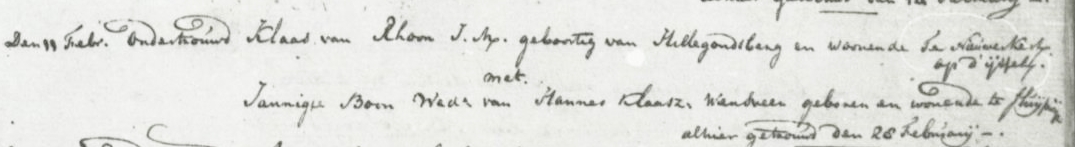 Den 11 Febr. Ondertrouwd Klaas van Rhoon J.M. geboortig van Hillegondsberg en woonende te Nieuwerkerk
op d'ijssel.
met.
Jannigje Boon Wedr van Hannes Klaasz. geboren en wonende te
alhier getrouwd den 28 Februarij -.